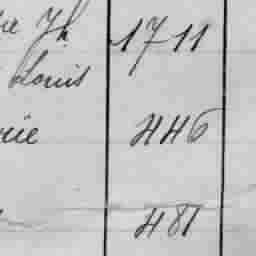 Jh 1711
Louis
rie 446
481